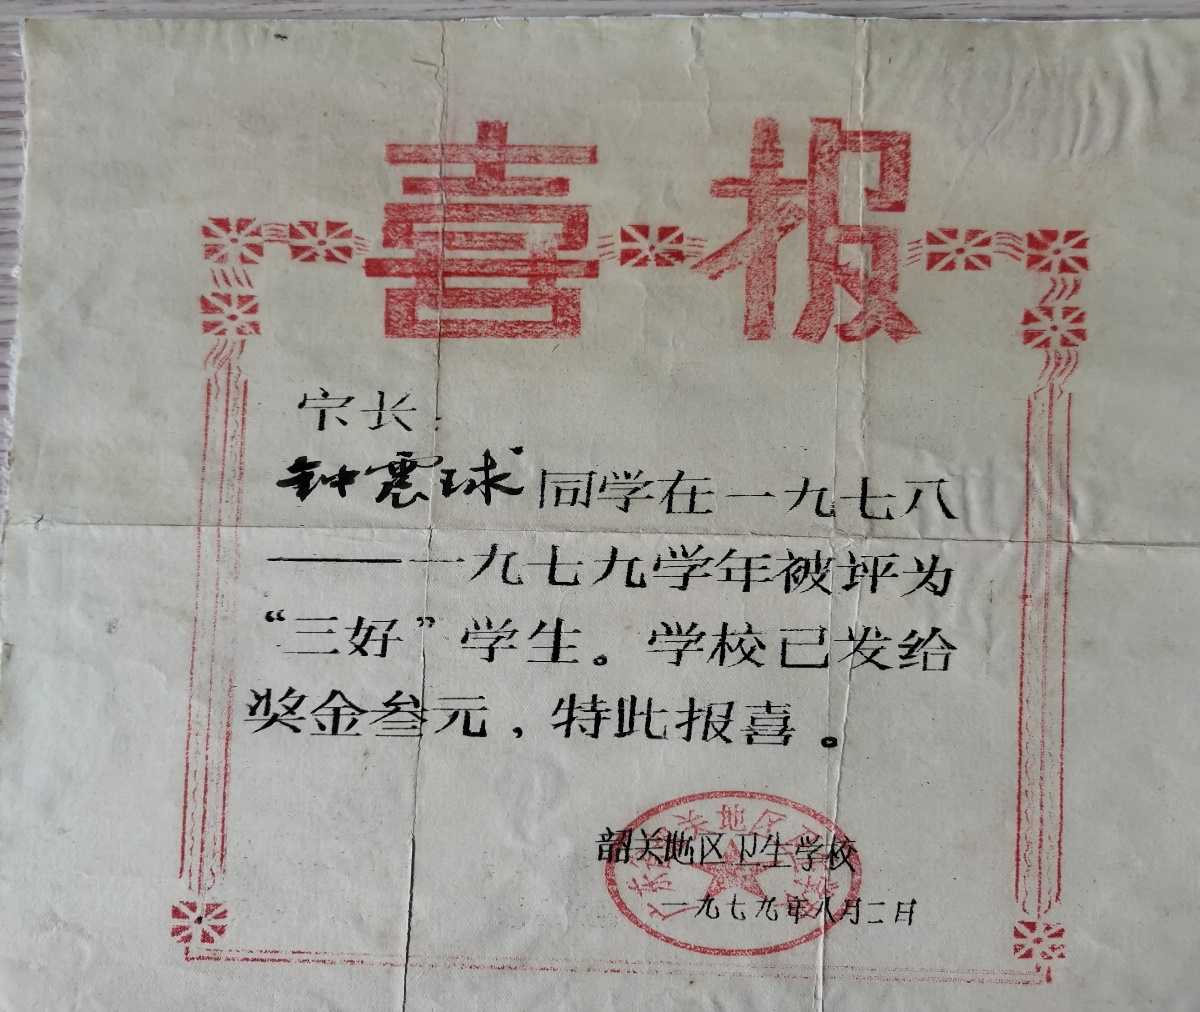 喜报
家长：
钟震球同学在一九七八
——一九七九学年被评为
“三好”学生。学校已发给
奖金叁元，特此报喜。
韶关地区卫生学校
一九七九年八月二日